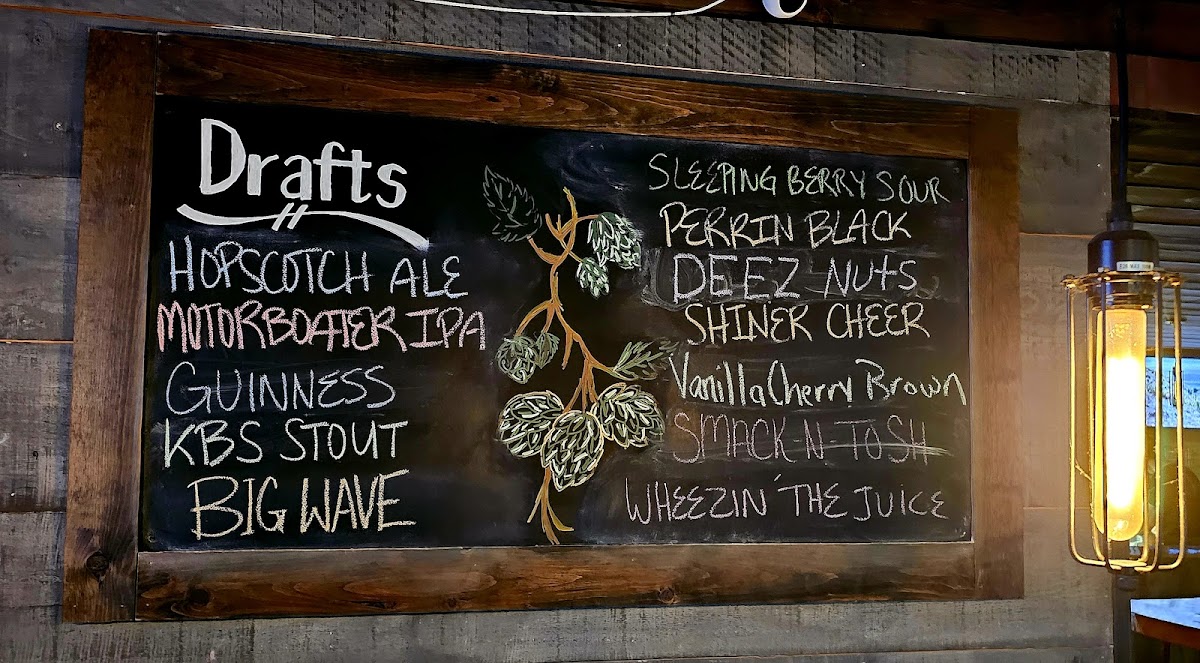 Drafts
HOPSCOTCH ALE
MOTORBOATER IPA
GUINNESS
KBS STOUT
BIG WAVE
SLEEPING BERRY SOUR
PERRIN BLACK
DEEZ NUTS
SHINER CHEER
Vanilla Cherry Brown
SMACK-N-TOSH
WHEEZIN' THE JUICE